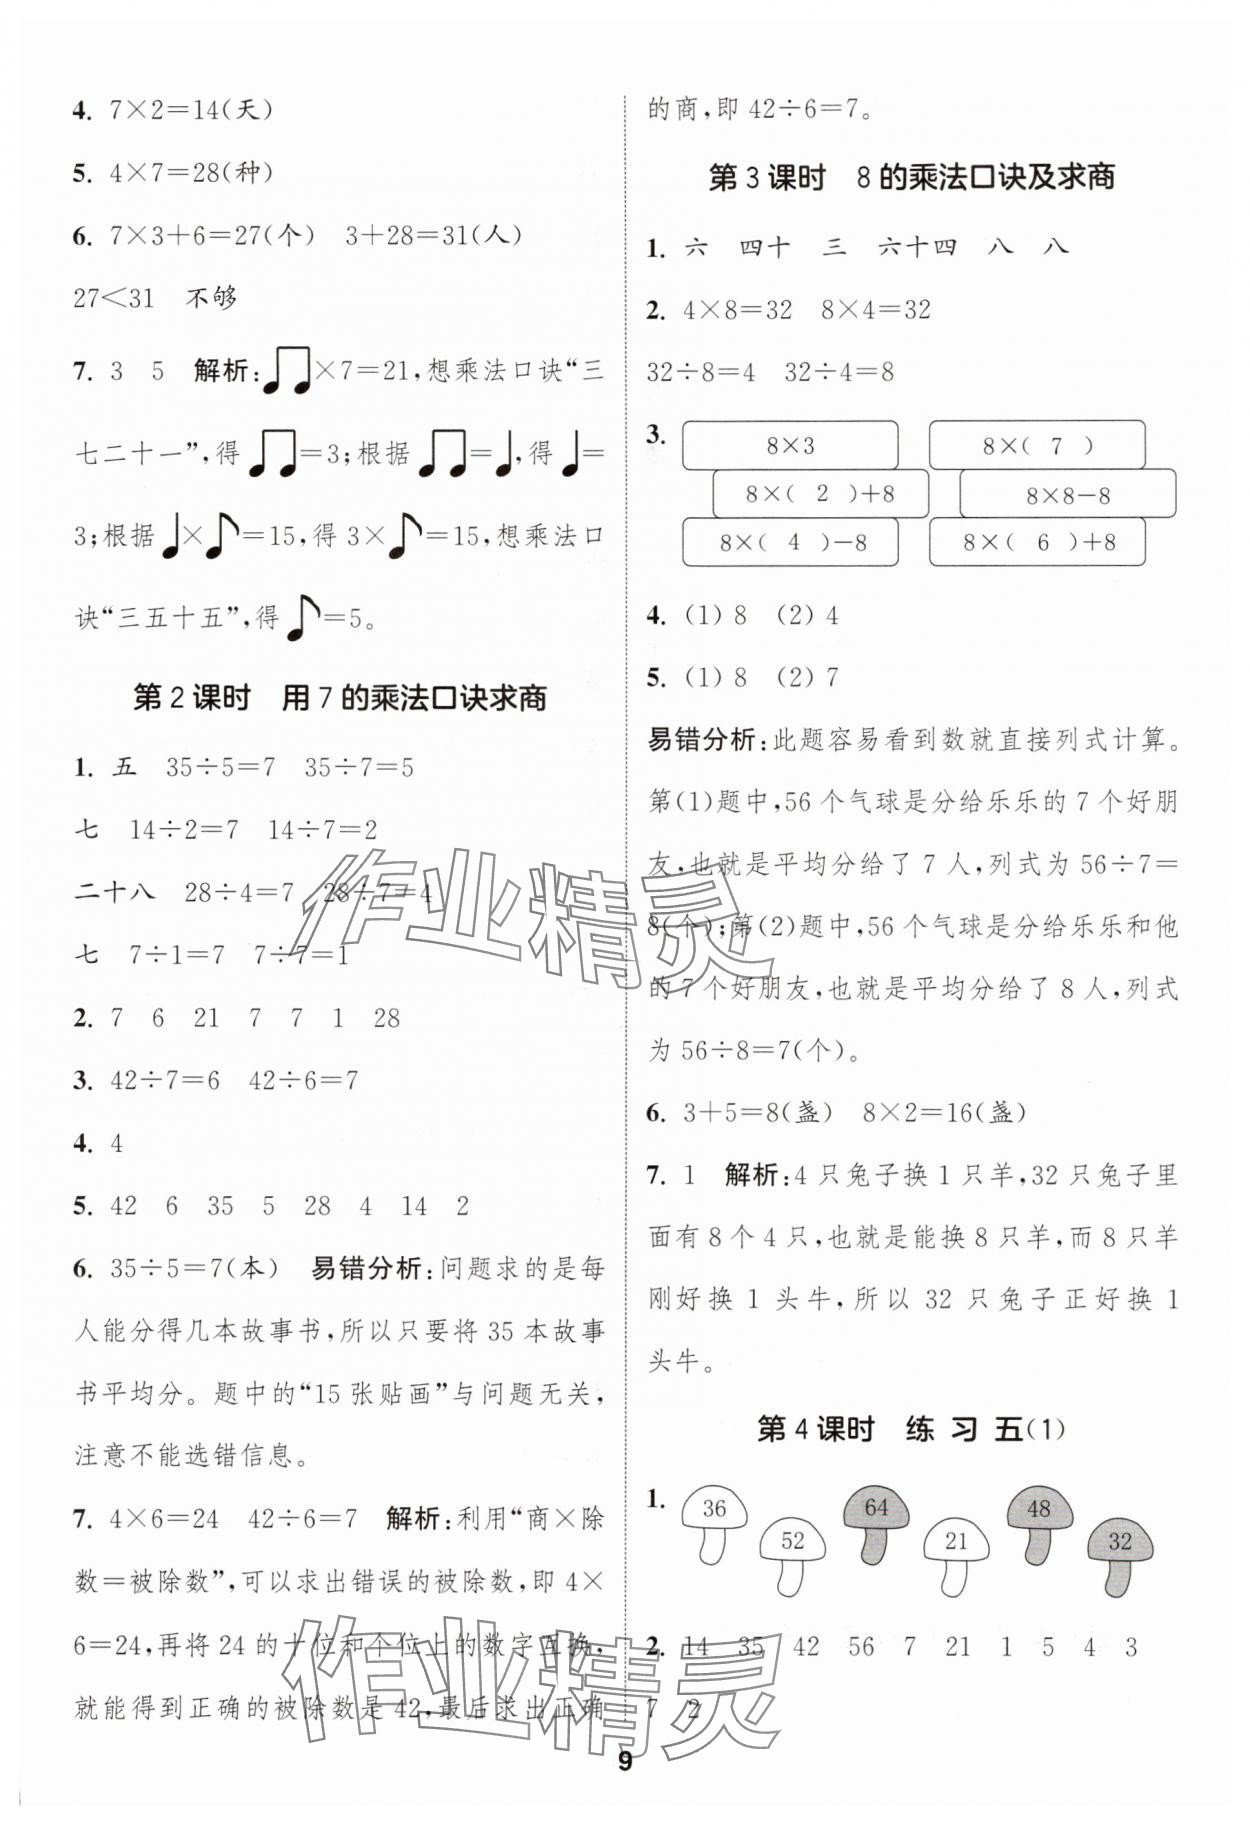 4. 7×2=14(天)
5. 4×7=28(种)
6. 7×3+6=27(个) 3+28=31(人)
27<31 不够
7. 3 5 解析:♫×7=21,想乘法口诀“三
七二十一”,得♫=3;根据♫=♩,得♩=
3;根据♩×♪=15,得 3×♪=15,想乘法口
诀“三五十五”,得♪=5。
第 2 课时 用 7 的乘法口诀求商
1. 五 35÷5=7 35÷7=5
七 14÷2=7 14÷7=2
二十八 28÷4=7 28÷7=4
七 7÷1=7 7÷7=1
2. 7 6 21 7 7 1 28
3. 42÷7=6 42÷6=7
4. 4
5. 42 6 35 5 28 4 14 2
6. 35÷5=7(本) 易错分析:问题求的是每
人能分得几本故事书,所以只要将 35 本故事
书平均分。题中的“15 张贴画”与问题无关,
注意不能选错信息。
7. 4×6=24 42÷6=7 解析:利用“商×除
数=被除数”,可以求出错误的被除数,即 4×
6=24,再将 24 的十位和个位上的数字互换,
就能得到正确的被除数是 42,最后求出正确
的商,即 42÷6=7。
第 3 课时 8 的乘法口诀及求商
1. 六 四十 三 六十四 八 八
2. 4×8=32 8×4=32
32÷8=4 32÷4=8
3. 8×3 8×( 7 )
8×( 2 )+8 8×8-8
8×( 4 )-8 8×( 6 )+8
4. (1) 8 (2) 4
5. (1) 8 (2) 7
易错分析:此题容易看到数就直接列式计算。
第(1)题中,56 个气球是分给乐乐的 7 个好朋
友,也就是平均分给了 7 人,列式为 56÷7=
8(个);第(2)题中,56 个气球是分给乐乐和他
的 7 个好朋友,也就是平均分给了 8 人,列式
为 56÷8=7(个)。
6. 3+5=8(盏) 8×2=16(盏)
7. 1 解析:4 只兔子换 1 只羊,32 只兔子里
面有 8 个 4 只,也就是能换 8 只羊,而 8 只羊
刚好换 1 头牛,所以 32 只兔子正好换 1
头牛。
第 4 课时 练 习 五(1)
1. 36 64 48
52 21 32
2. 14 35 42 56 7 21 1 5 4 3
7 2
9
作业精灵
作业精灵